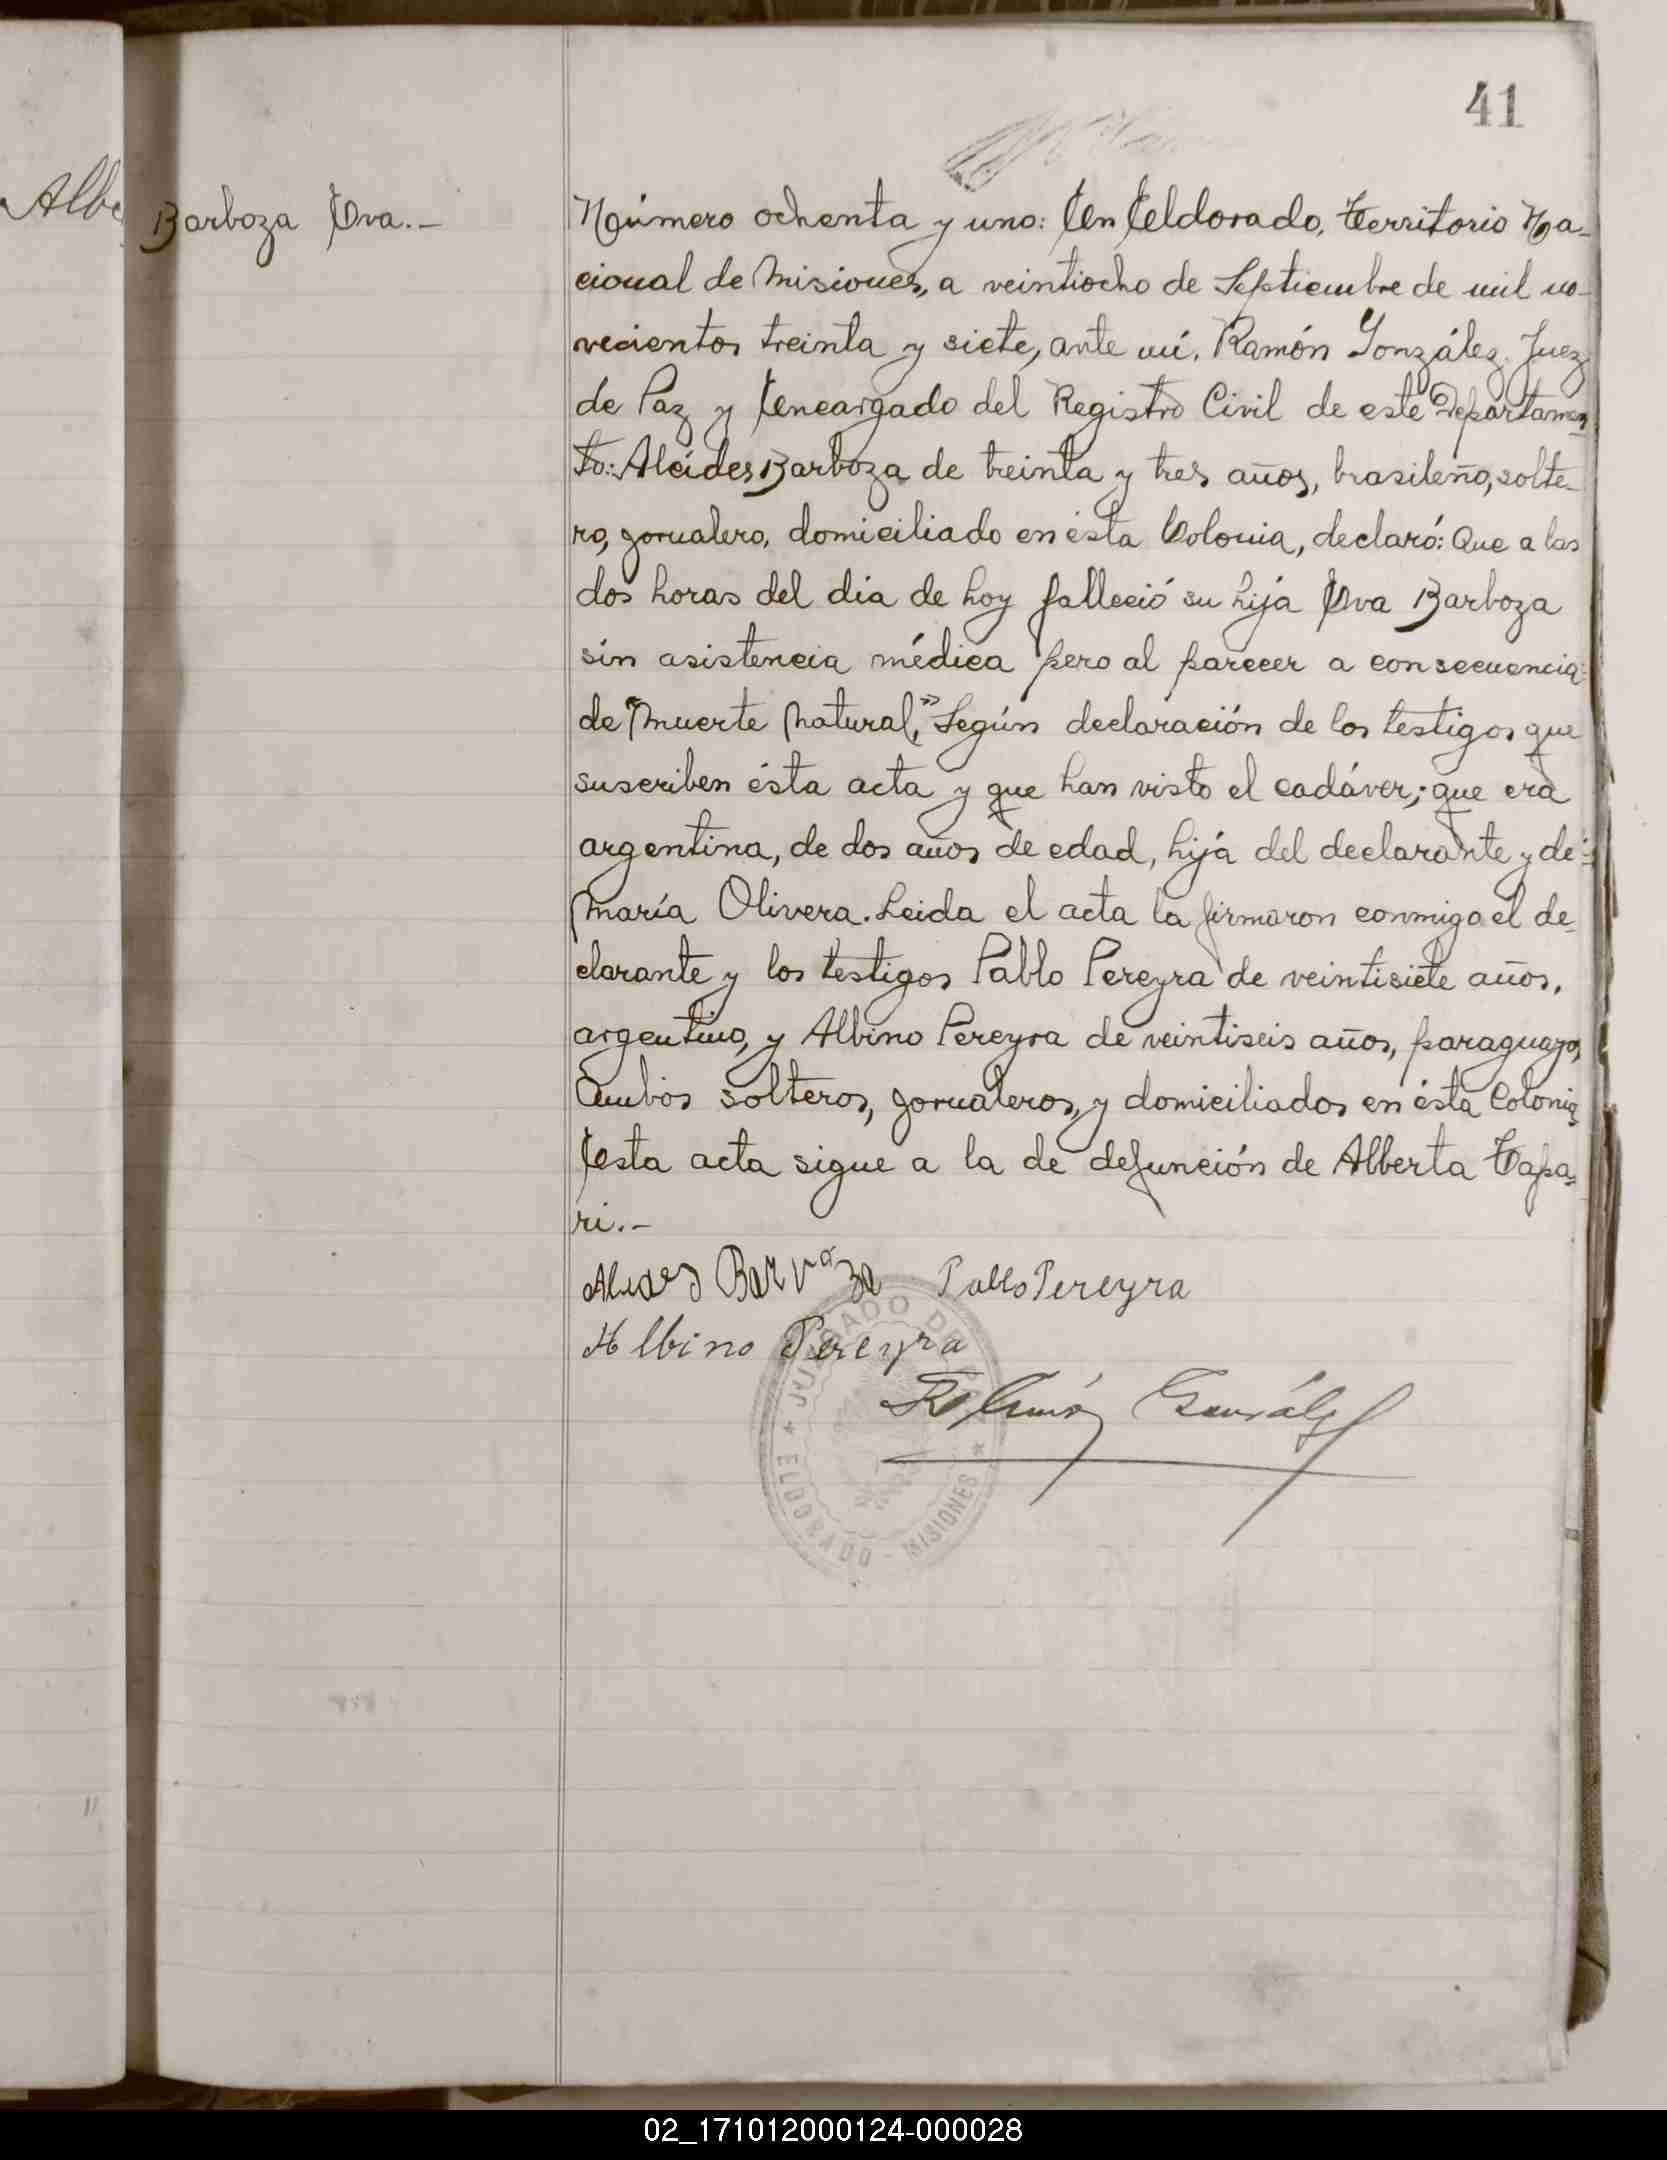 41
Albe
Barboza Eva.-
Número ochenta y uno: En Eldorado, Territorio Na-
cional de Misiones, a veintiocho de Septiembre de mil no-
vecientos treinta y siete, ante mí, Ramón González Juez
de Paz y Encargado del Registro Civil de este Departamen-
to: Alcides Barboza de treinta y tres años, brasileño, solte-
ro, jornalero, domiciliado en ésta Colonia, declaró: Que a las
dos horas del día de hoy falleció su hija Eva Barboza
sin asistencia médica pero al parecer a consecuencia
de "Muerte Natural," Según declaración de los testigos que
suscriben ésta acta y que han visto el cadáver; que era
argentina, de dos años de edad, hija del declarante y de
María Olivera. Leida el acta la firmaron conmigo el de-
clarante y los testigos Pablo Pereyra de veintisiete años,
argentino, y Albino Pereyra de veintiseis años, paraguayo,
Ambos solteros, jornaleros, y domiciliados en ésta Colonia
Esta acta sigue a la de defunción de Alberta Tapa-
ri.-
Barvoza Pablo Pereyra
Albino Pereyra
Ramón González
JUZGADO DE
ELDORADO - MISIONES
02_171012000124-000028